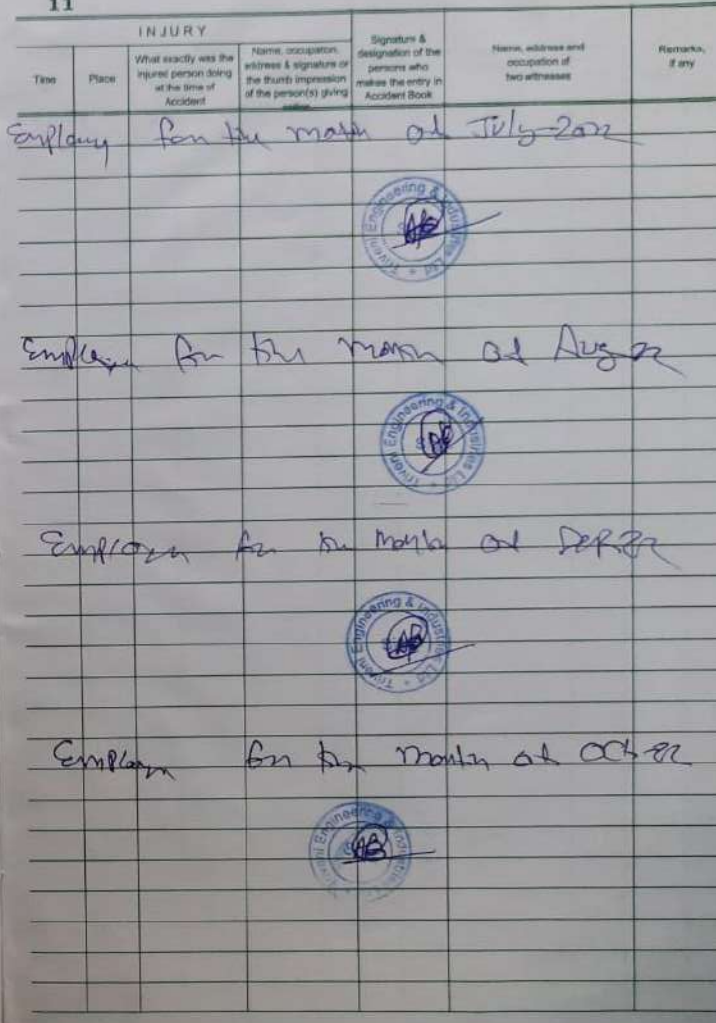 11
INJURY
Time
Place
What exactly was the
injured person doing
at the time of
Accident
Name, occupation,
address & signature or
the thumb impression
of the person(s) giving
Signature &
designation of the
persons who
makes the entry in
Accident Book
Name, address and
occupation of
two witnesses
Remarks,
if any
for the month of July-2022
Triveni Engineering & Industries Ltd
for the month of Aug 22
Triveni Engineering & Industries Ltd
for the month of
Triveni Engineering & Industries Ltd
for the month of Oct-22
Triveni Engineering & Industries
AB